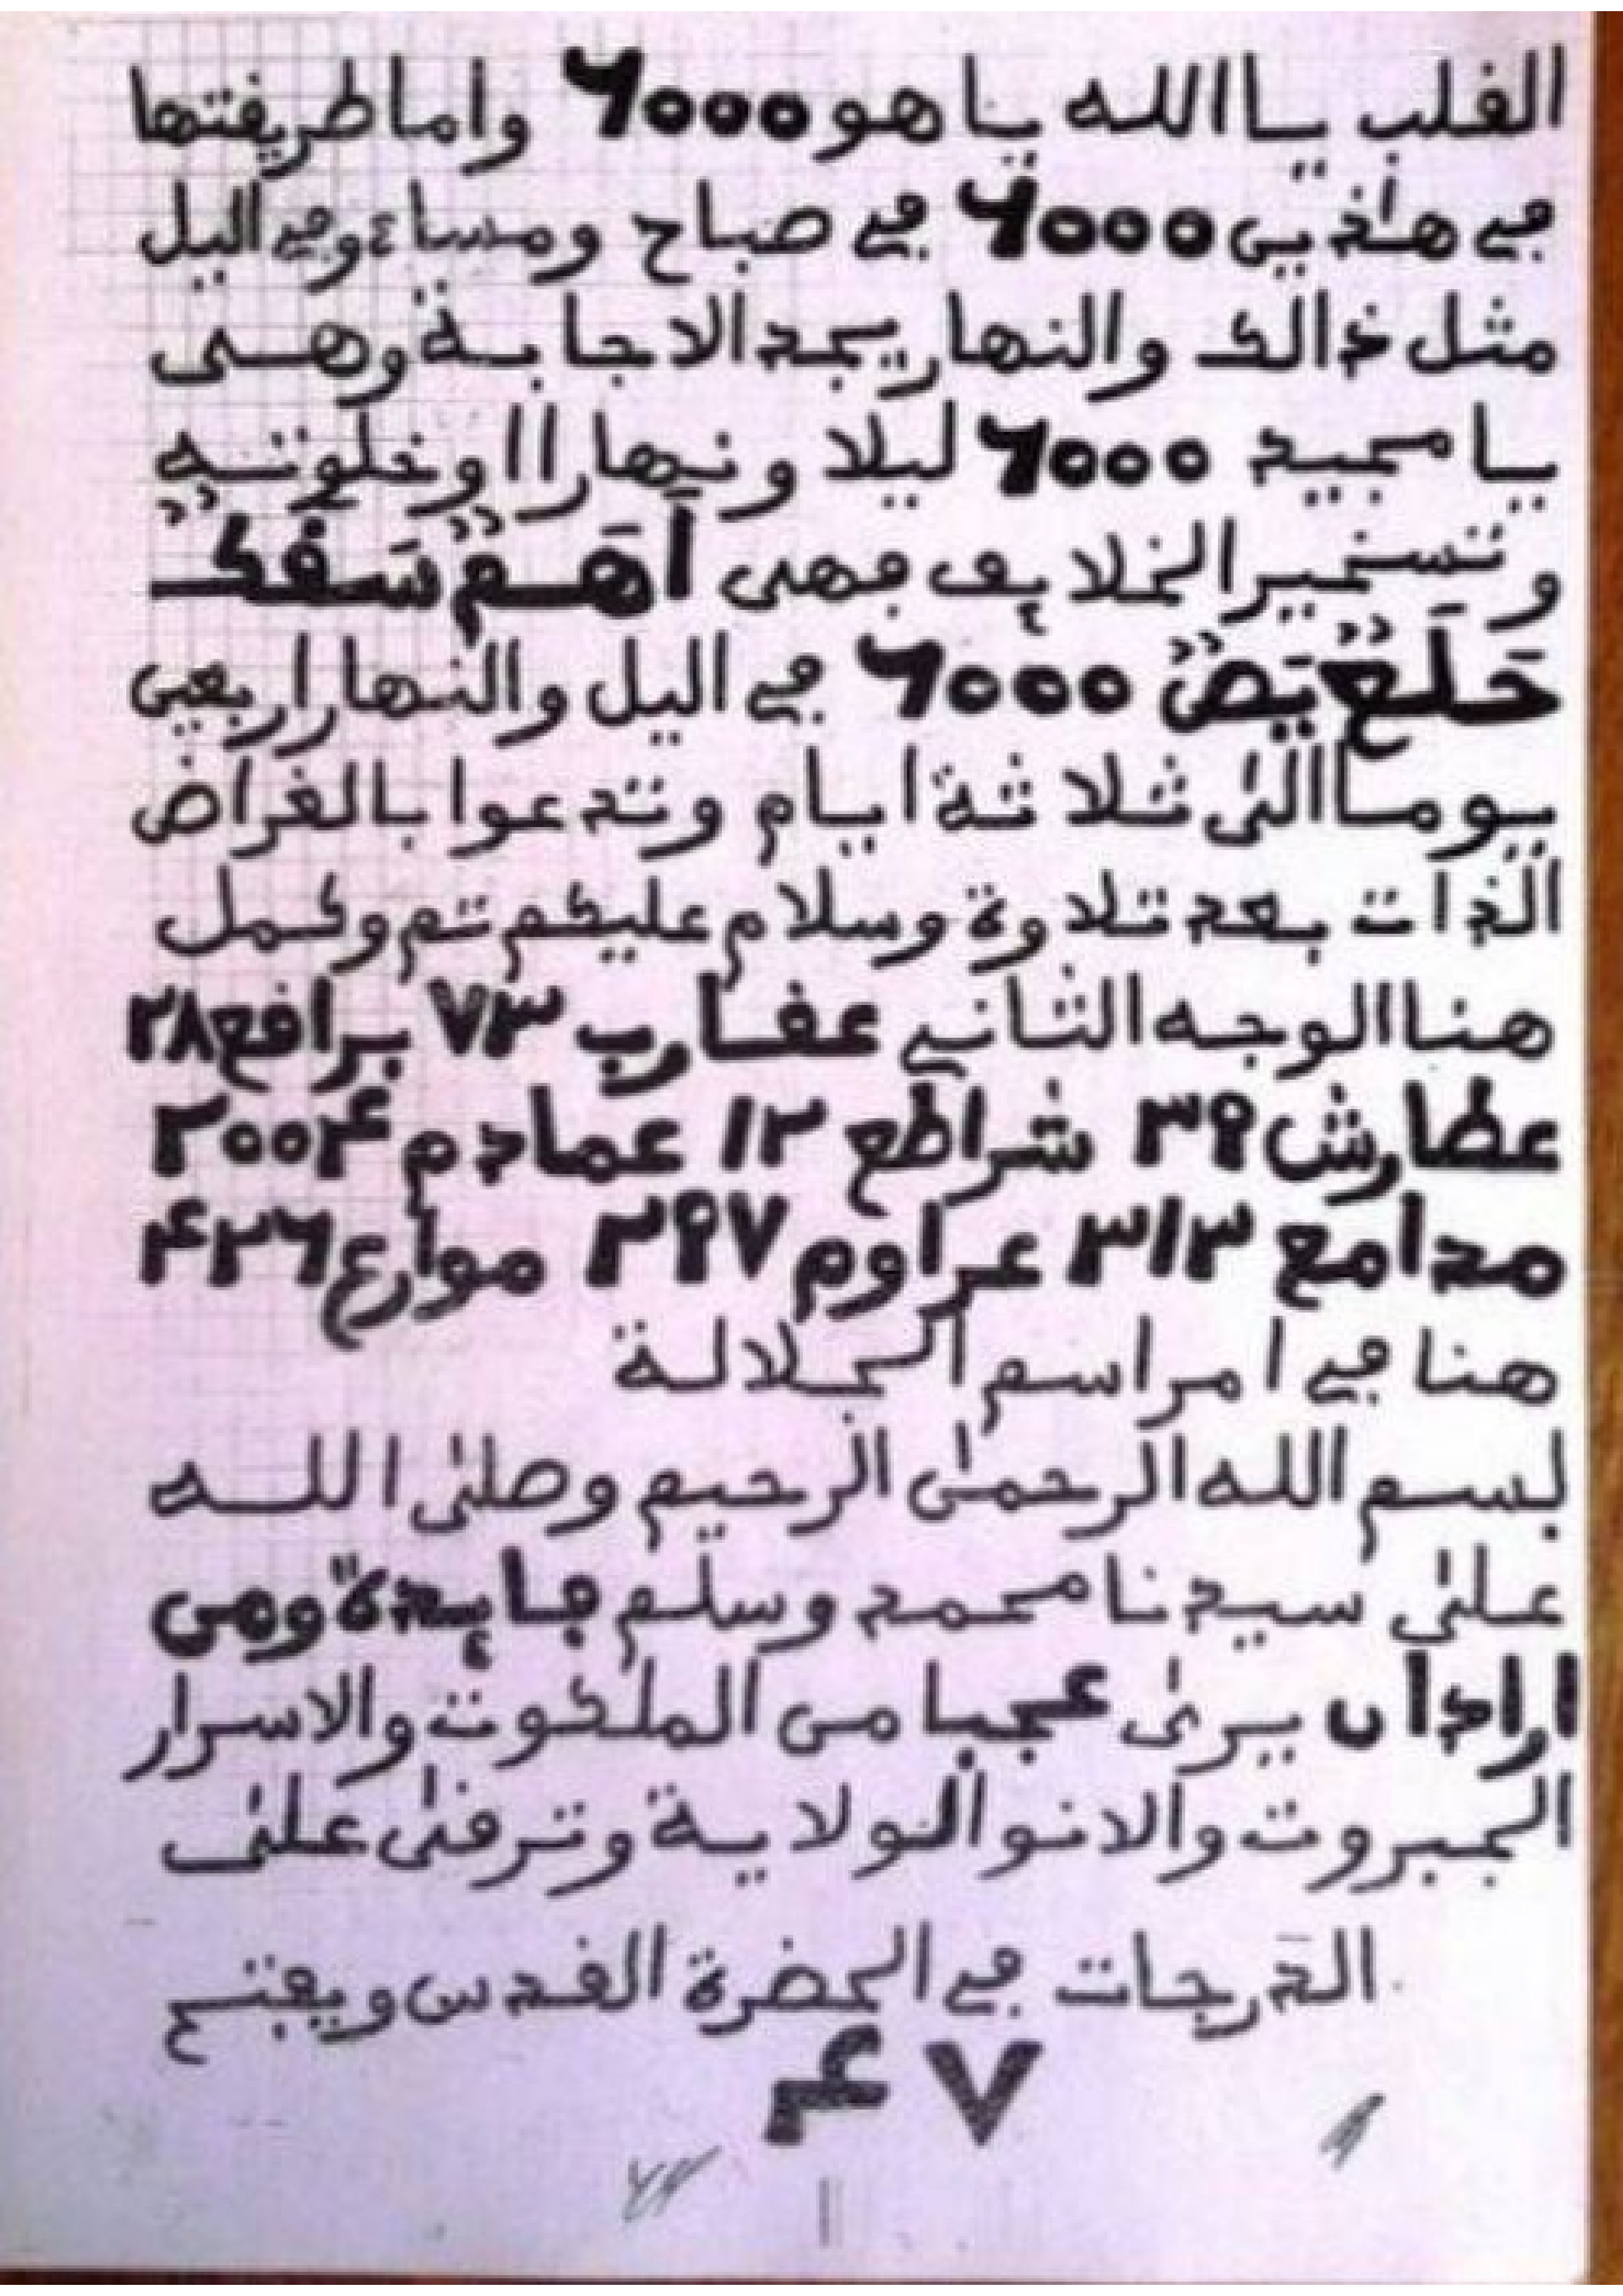 الفلب يا الله يا هو ٦٥٥٥ واما طريفتها
ڢے هاذيى ٦٥٥٥ ڢے صباح ومساء وڢے اليل
مثل ذالك والنهار يجد الاجابة وهى
يا مجيد ٦٥٥٥ ليلا ونهارا اوخلوته
وتسخير الخلايف ڢهى اَهَمْ سَفَكْ
حَلَعْ يَصْ ٦٥٥٥ ڢے اليل والنهار اربعين
يوما الىٰ ثلاثة ايام وتدعوا بالغراض
الذات بعد تلاوة وسلام عليكم تم وكمل
هنا الوجه الثانے عفارب ٧٣ برافع ٢٨
عطارش ٣٩ شراطع ١٢ عمادم ٢٥٥۴
مدامع ٣١٣ عراوم ٢٩٧ موارع ۴٢٦
هنا ڢے امر اسم الجلالة
بسم الله الرحمٰں الرحيم وصلىٰ الله
علىٰ سيدنا محمد وسلم ڢايدة ومں
اراد اں يرىٰ عجبا مں الملكوت والاسرار
الجبروت والانوا الولاية وترفىٰ علىٰ
الدرجات ڢے الحضرة الفدس ويڢتح
۴٧